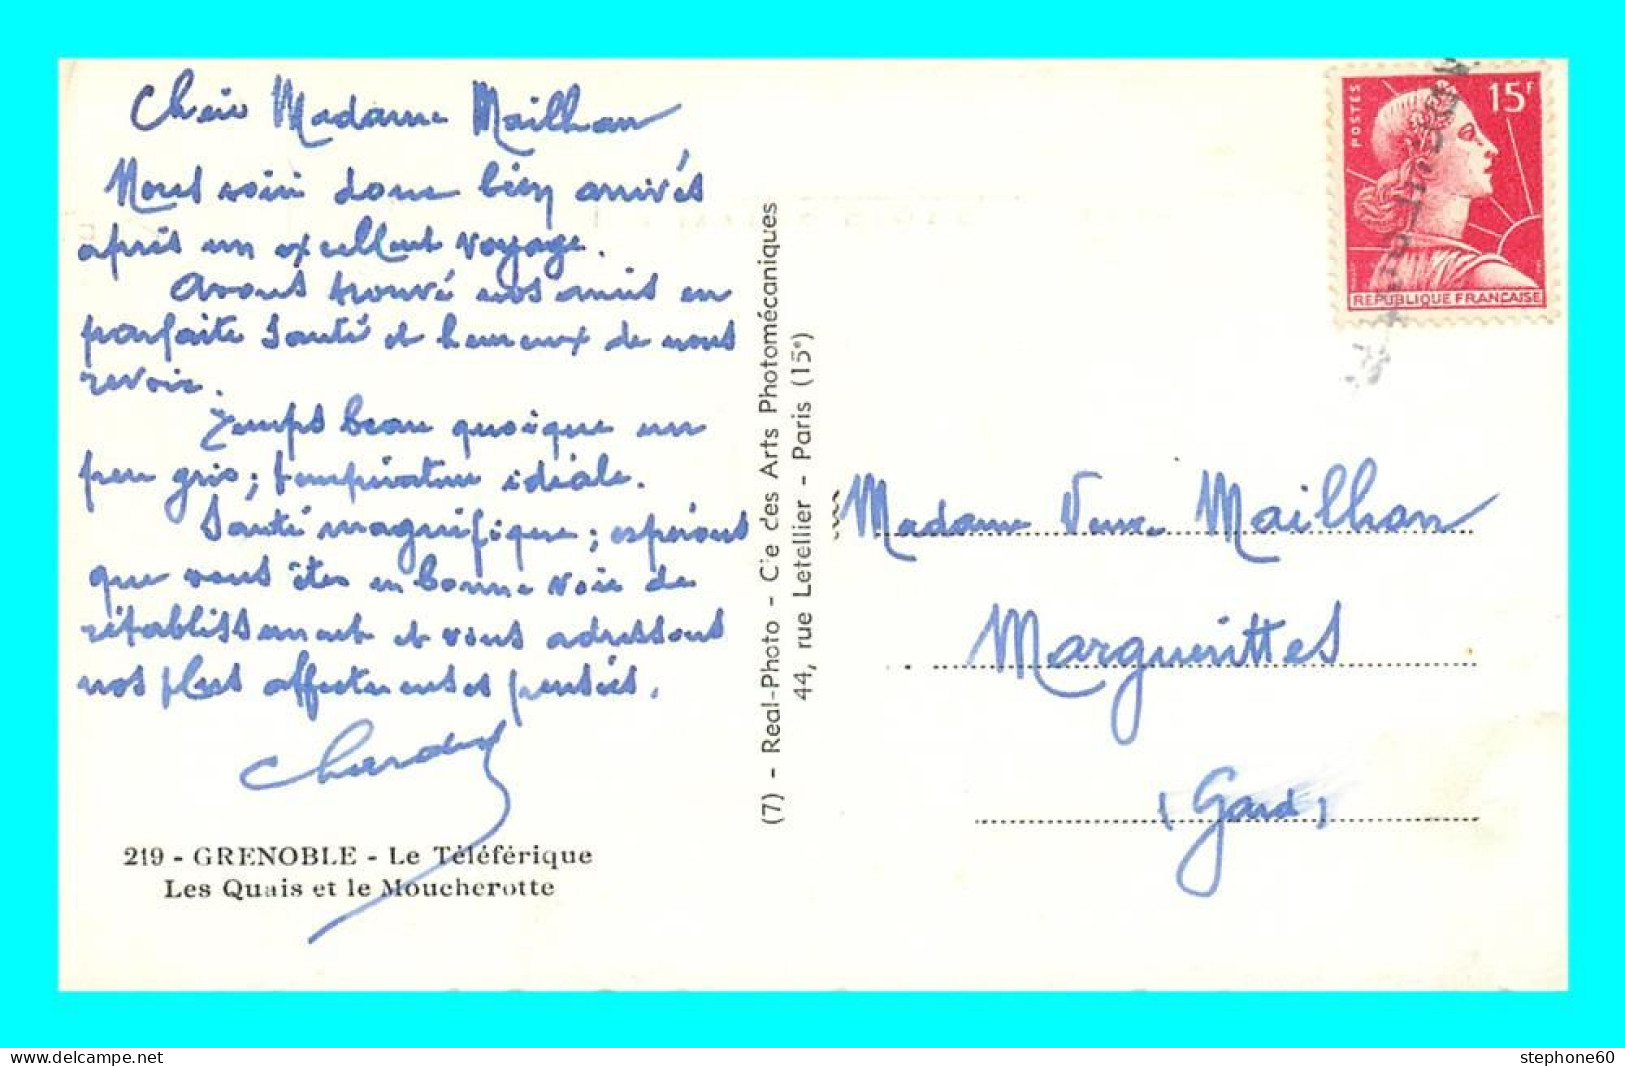 Chère Madame Mailhan
Nous voici donc bien arrivés
après un excellent voyage.
Avons trouvé nos amis en
parfaite santé et heureux de nous
revoir.
Temps beau quoique un
peu gris; température idéale.
Santé magnifique; espérons
que vous êtes en bonne voie de
rétablissement et vous adressons
nos plus affectueuses pensées.
219 - GRENOBLE - Le Téléférique
Les Quais et le Moucherotte
(7) - Real-Photo - Cie des Arts Photomécaniques
44, rue Letellier - Paris (15e)
POSTES
15F
REPUBLIQUE FRANCAISE
Madame Veuve Mailhan
Marguerittes
(Gard)
delcampe.net
stephone60